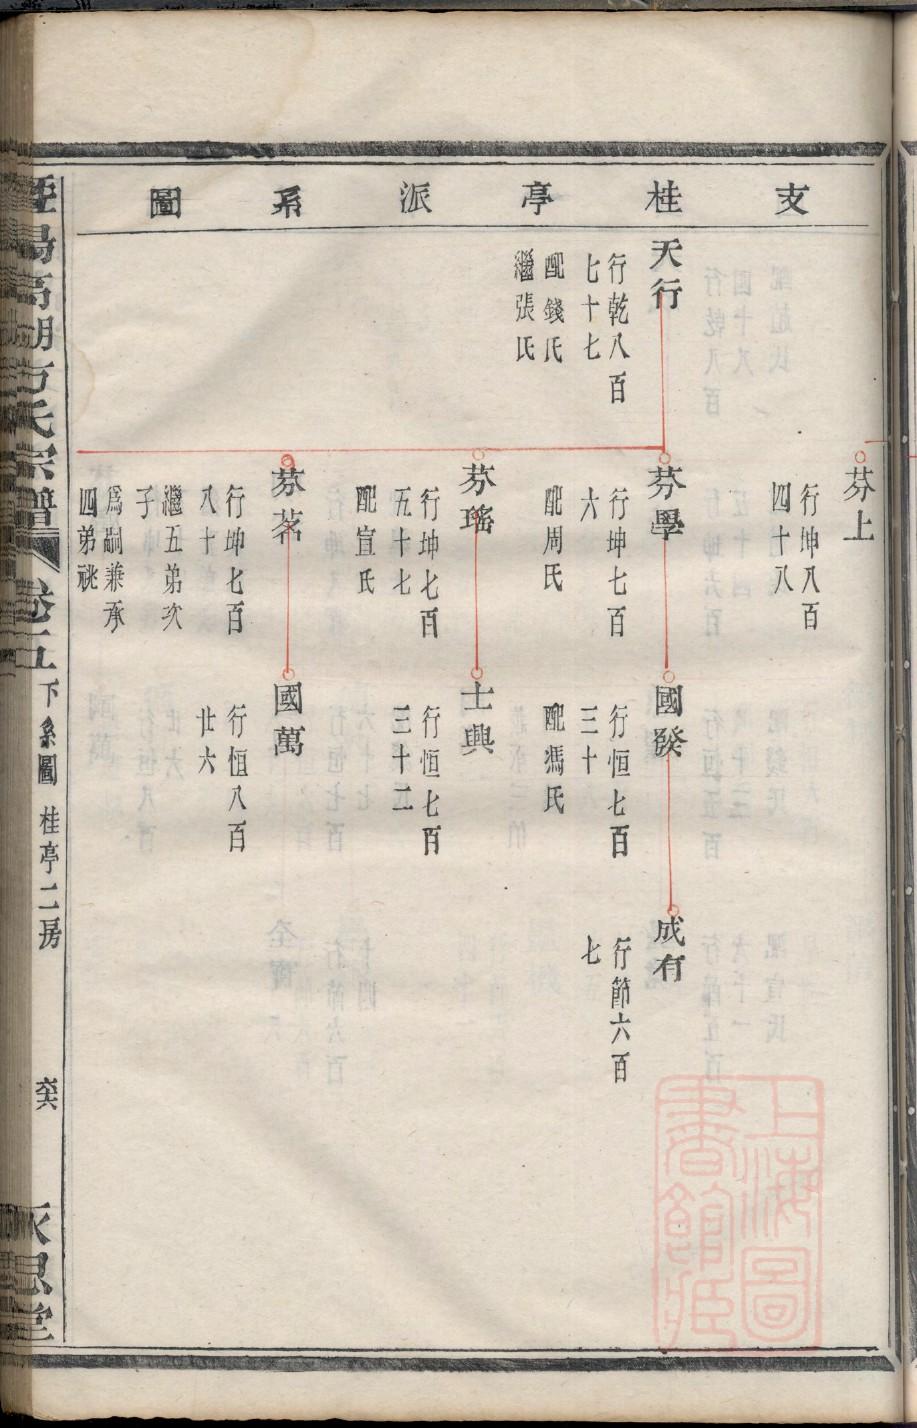 支桂亭派系圖
芬上
行坤八百
四十八
天行
行乾八百
七十七
配錢氏
繼張氏
芬學
行坤七百
六
配周氏
國發
行恒七百
三十
配馮氏
成有
行節六百
七
芬瑤
行坤七百
五十七
配宣氏
士興
行恒七百
三十二
芬茗
行坤七百
八十
繼五弟次
子
爲嗣兼承
四弟祧
國萬
行恒八百
廿六
暨陽高湖方氏宗譜
卷二五
下系圖
桂亭二房
永思堂
上海圖
書館藏